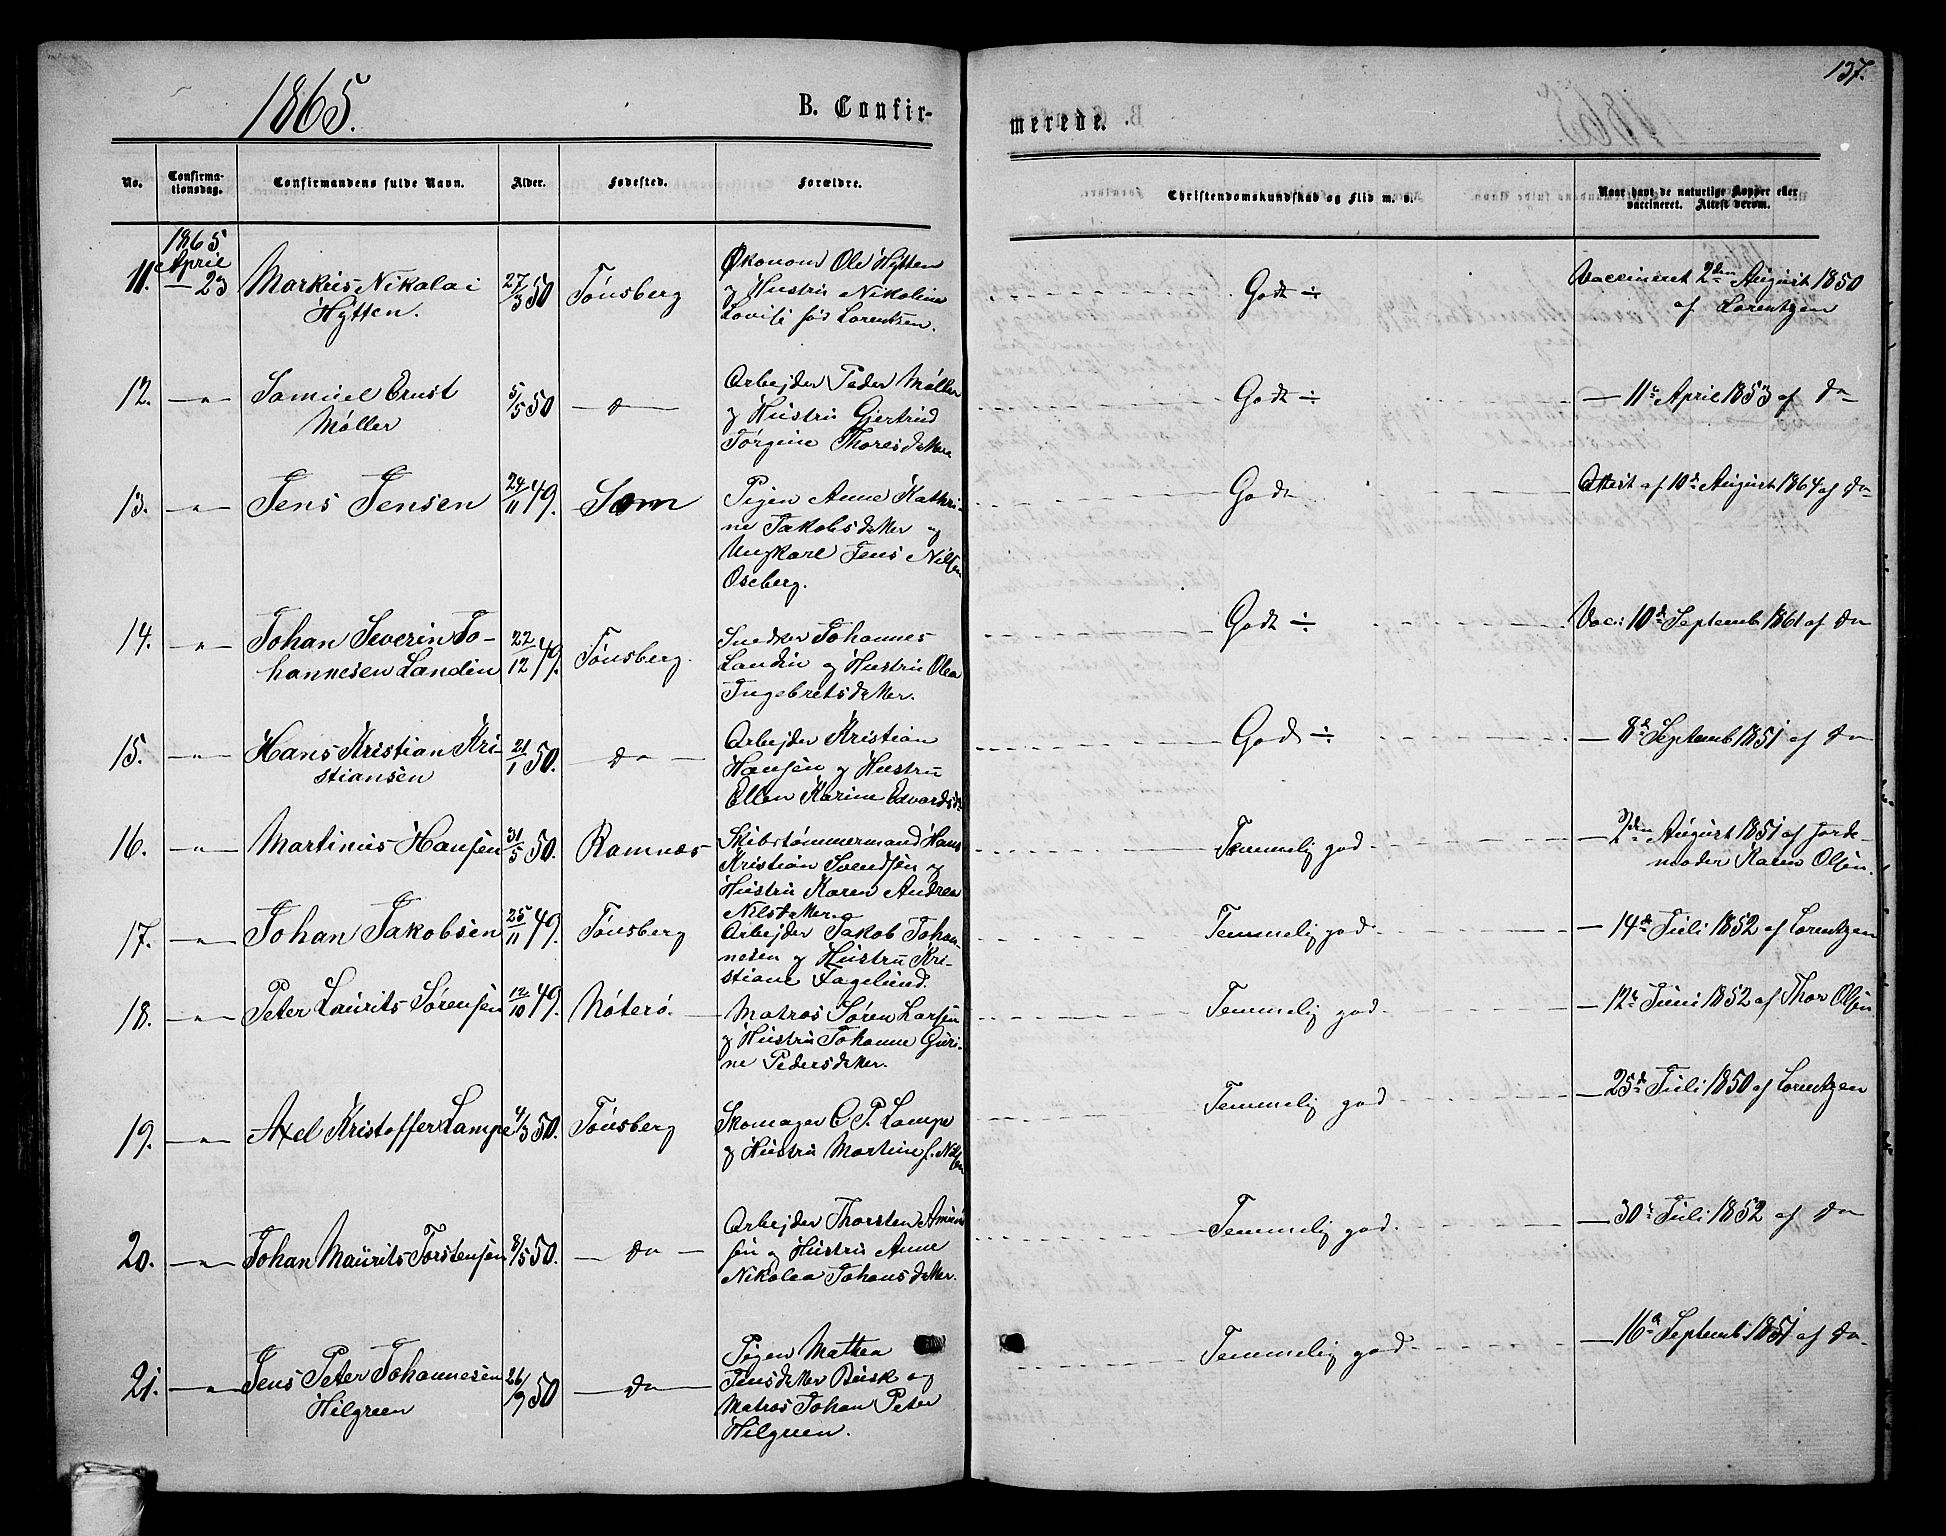 1865.
B. Confir-
merede.
137.
No.
Confirma-
tionsdag.
Confirmandens fulde Navn.
Alder.
Fødested.
Forældre.
Christendomskundskab og Flid m. v.
Naar havt de naturlige Kopper eller
vaccineret. Attest derom.
1865
April
11. — 23 Markus Nikolai
Hytten.
27/3 50 Tønsberg
Økonom Ole Hytten
og Hustru Nikoline
Lovise fød Lorentzen.
Godt ÷
Vaccineret 2den August 1850
af Lorentzen
12. —"— Samuel Ernst
Møller
5/5 50 — d —
Arbejder Peder Møller
og Hustru Gjertrud
Jørgine Thoresdatter
Godt ÷
— 11te April 1853 af do
13. —"— Jens Jensen
24/11 49. Sem
Pigen Anne Kathri-
ne Jakobsdatter og
Ungkarl Jens Nilsen
Oseberg.
Godt
Attest af 10de August 1864 af do
14. —"— Johan Severin Jo-
hannesen Landin
22/12 49. Tønsberg.
Snedker Johannes
Landin og Hustru Olea
Ingebretsdatter.
Godt ÷
Vacc. 10de Septemb 1861 af do
15. —"— Hans Kristian Kri-
stiansen
21/1 50. — do —
Arbejder Kristian
Hansen og Hustru
Ellen Karine Edvardsdr
Godt ÷
— 8de Septemb 1851 af do
16. —"— Martinus Hansen
31/5 50. Ramnæs
Skibstømmermand Hans
Kristian Svendsen og
Hustru Karen Andrea
Nilsdatter.
Temmelig god
— 2den August 1851 af Jorde-
moder Karen Olsen.
17. —"— Johan Jakobsen
25/11 49. Tønsberg
Arbejder Jakob Johan-
nesen og Hustru Kri-
stiane Fagelund.
Temmelig god
— 14de Juli 1852 af Lorentzen
18. —"— Peter Laurits Sørensen
12/10 49. Nøterø.
Matros Søren Larsen
og Hustru Johanne Guri-
ne Pedersdatter.
Temmelig god
— 12te Juni 1852 af Thor Olsen
19. —"— Axel Kristoffer Lampe
4/3 50. Tønsberg
Skomager C. P. Lampe
og Hustru Martine f. Nilsen
Temmelig god
— 25de Juli 1850 af Lorentzen
20. —"— Johan Maurits Torstensen
8/5 50. — do —
Arbejder Thorsten Amund-
sen og Hustru Anne
Nikolea Johansdatter.
Temmelig god
— 30te Juli 1852 af do
21. —"— Jens Peter Johannesen
Hilgreen
26/9 50 — do —
Pigen Mathea
Jensdatter Busk og
Matros Johan Peter
Hilgreen.
Temmelig god
— 16de Septemb 1851 af do